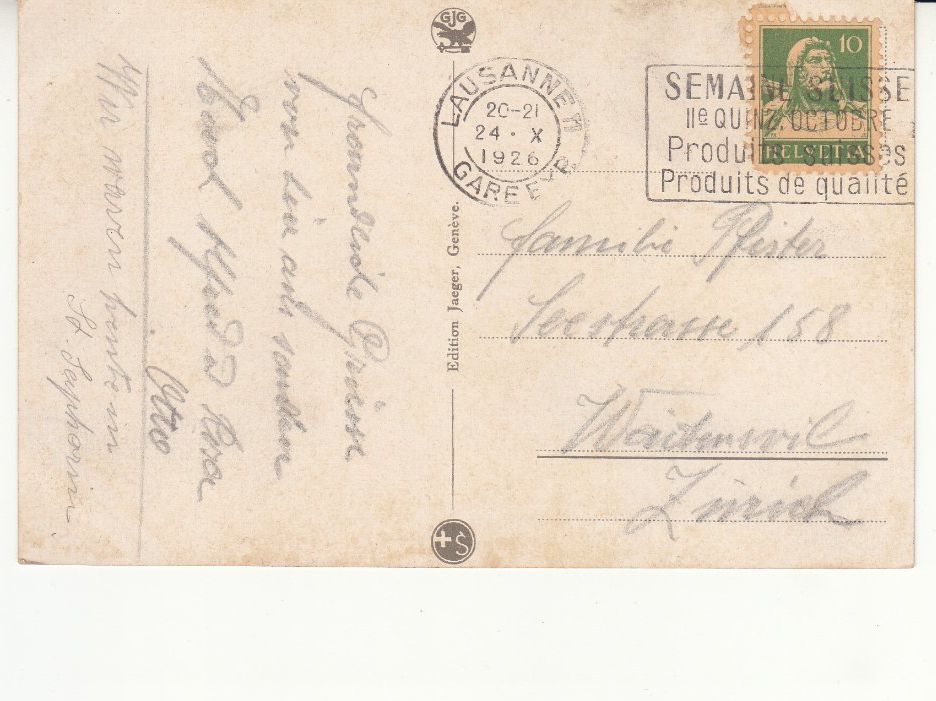 GJG
LAUSANNE 1
20-21
24 · X
1926
GARE EXP.
SEMAINE SUISSE
IIe QUINZ. OCTOBRE
Produits suisses
Produits de qualité
10
HELVETIA
Familie Pfister
Seestrasse 158
Wädenswil
Zürich
Edition Jaeger, Genève.
Freundliche Grüsse
von hier aus senden
Alfred & Rosa
Otto
Wir waren heute in
St. Saphorin
+S